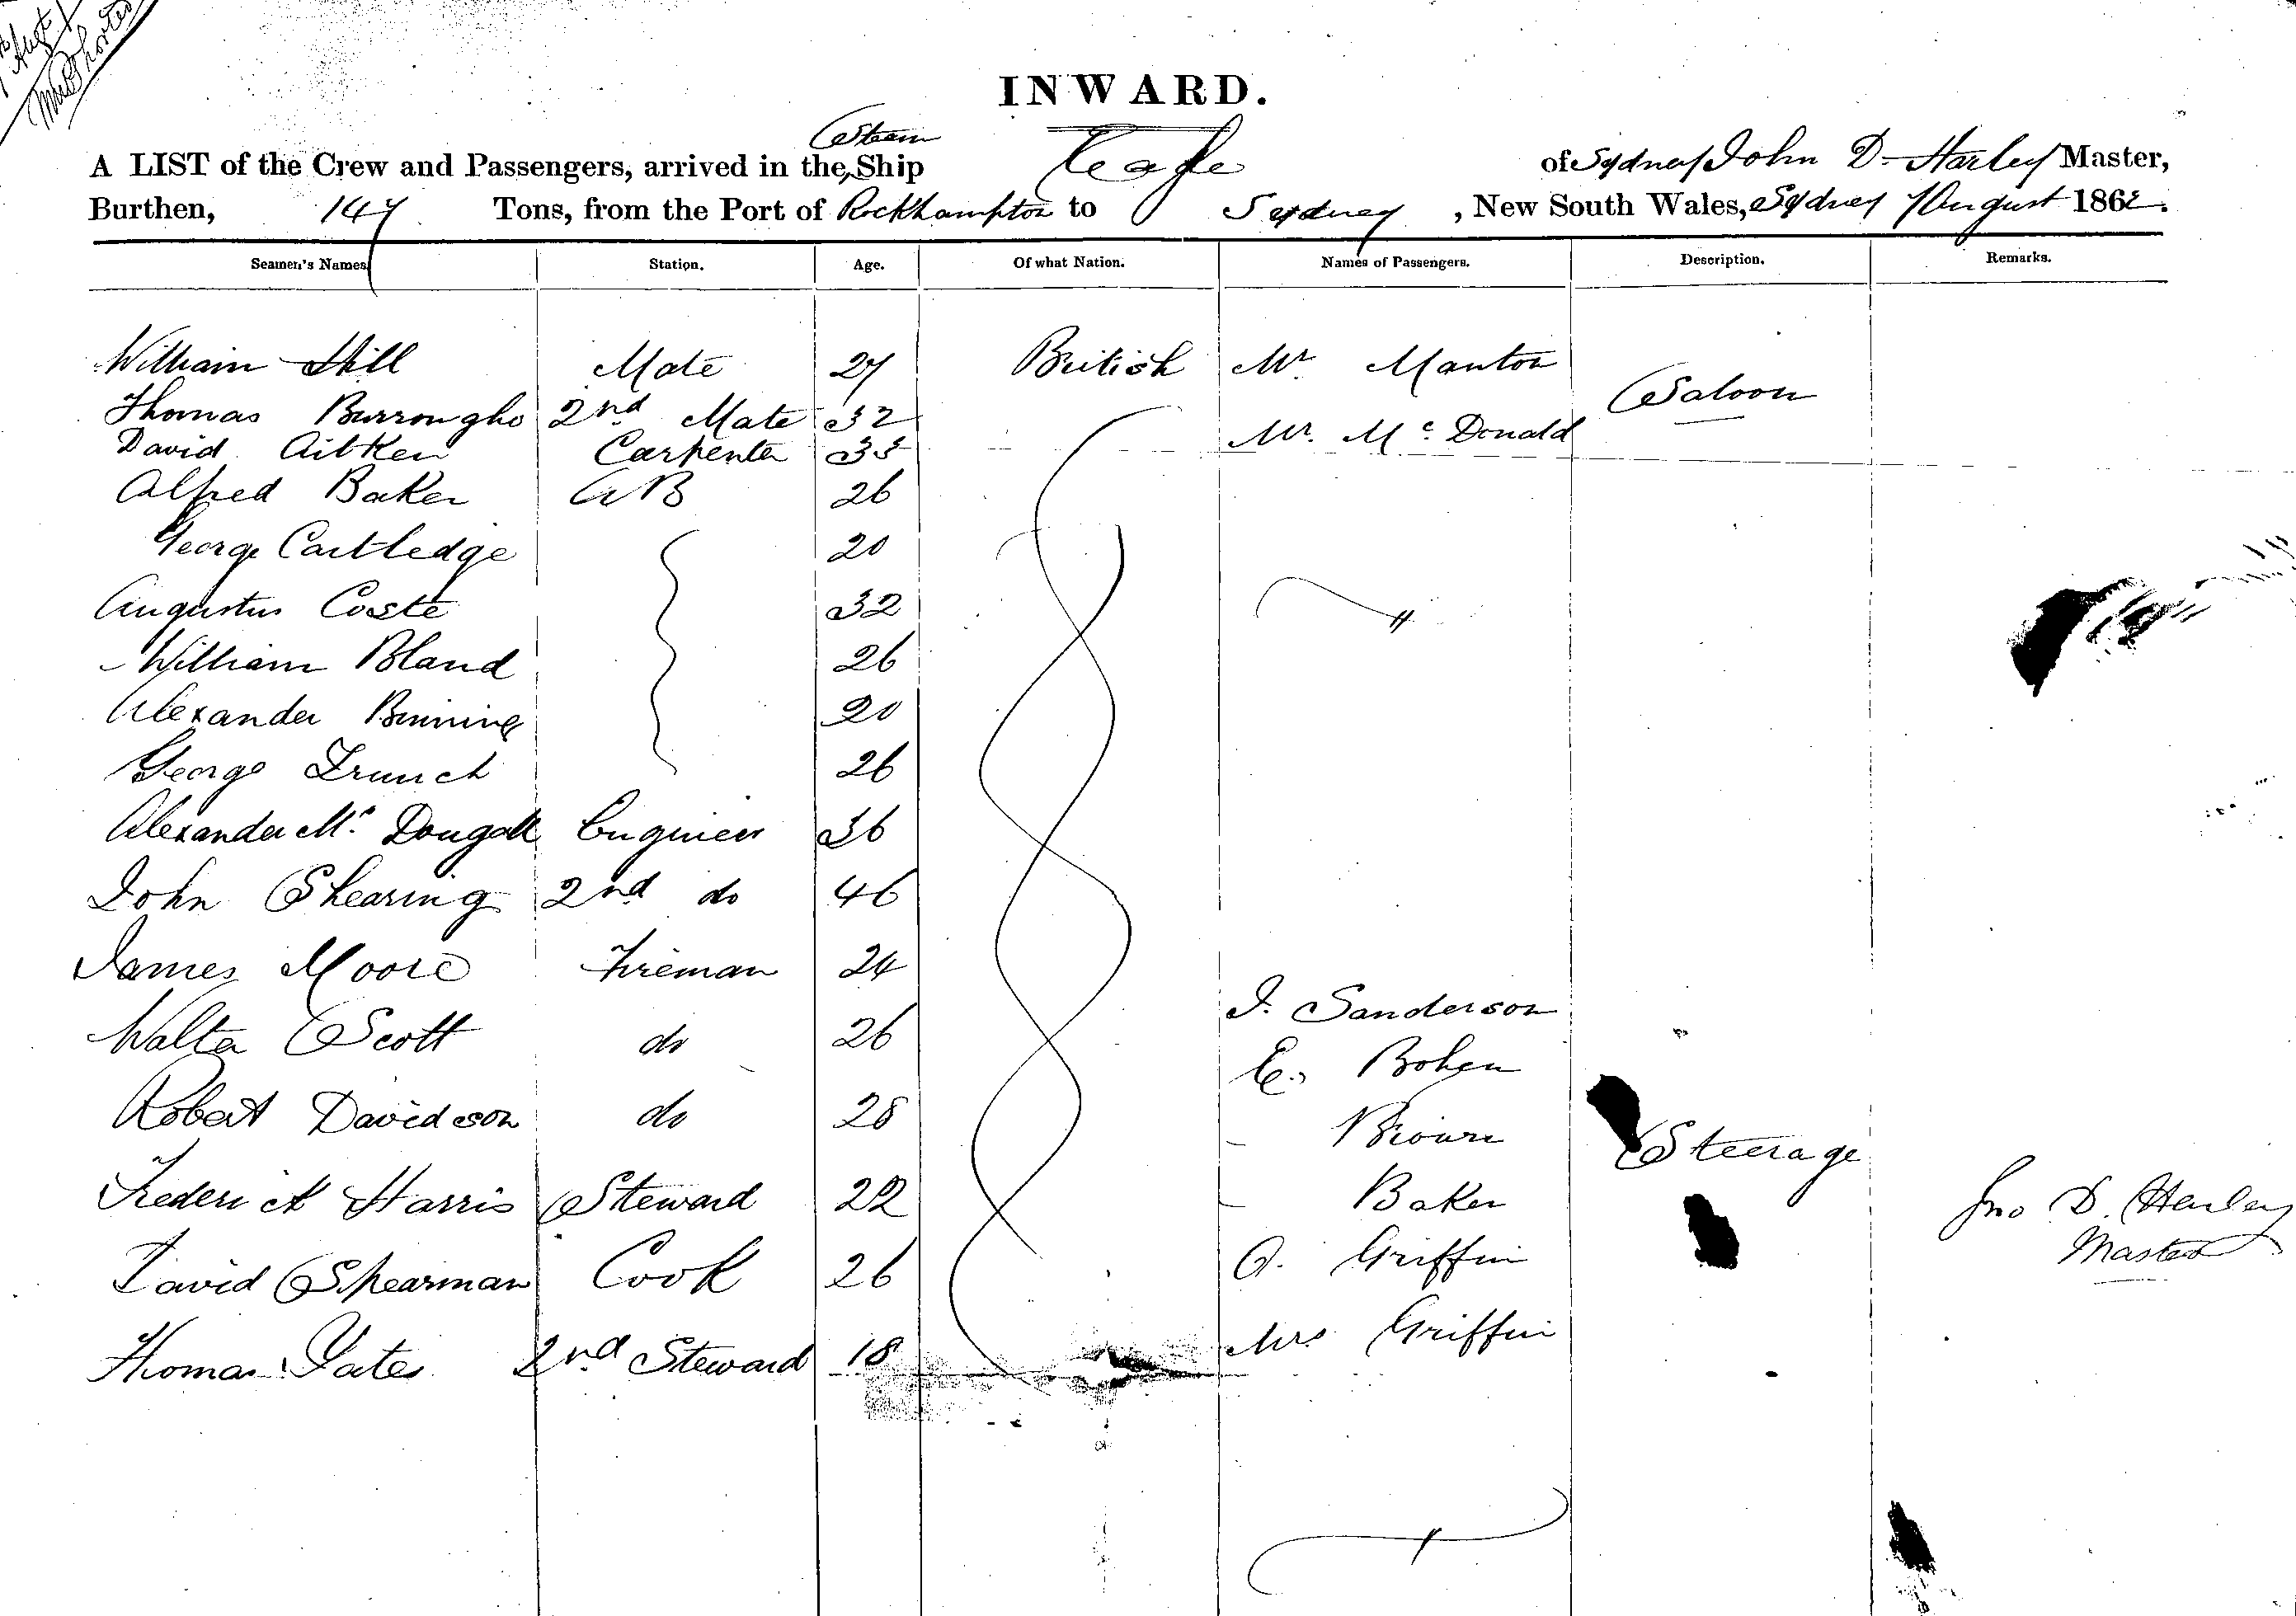 INWARD.
A LIST of the Crew and Passengers, arrived in the Steam Ship of Sydney John D. Harley Master,
Burthen, 147 Tons, from the Port of Rockhampton to Sydney, New South Wales, Sydney 7 August 1862.
Seamen's Names. Station. Age. Of what Nation. Names of Passengers. Description. Remarks.
William Hill Mate 27 British Mr. Manton Saloon
Thomas Burroughs 2nd Mate 32 Mr. Mc Donald
David Aitken Carpenter 33
Alfred Baker AB 26
George Cartledge 20
Augustus Coste 32
William Bland 26
Alexander Binning 20
George 26
Alexander Mc Dougall Engineer 36
John Shearing 2nd do 46
James Moore Fireman 24
J. Sanderson
Walter Scott do 26
E. Bohen
Robert Davidson do 28
- Brown Steerage
Frederick Harris Steward 22 - Baker
Jno D. Harley
Master
David Spearman Cook 26 Griffin
Thomas Yates 2nd Steward 18 Mrs Griffin